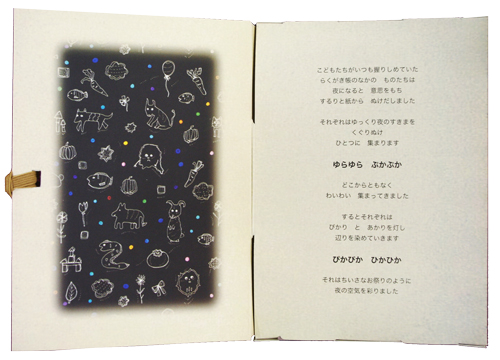 こどもたちがいつも握りしめていた
らくがき帳のなかの　ものたちは
夜になると　意思をもち
するりと紙から　ぬけだしました
それぞれはゆっくり夜のすきまを
くぐりぬけ
ひとつに　集まります
ゆらゆら　ぷかぷか
どこからともなく
わいわい　集まってきました
するとそれぞれは
ぴかり　と　あかりを灯し
辺りを染めていきます
ぴかぴか　ひかひか
それはちいさなお祭りのように
夜の空気を彩りました